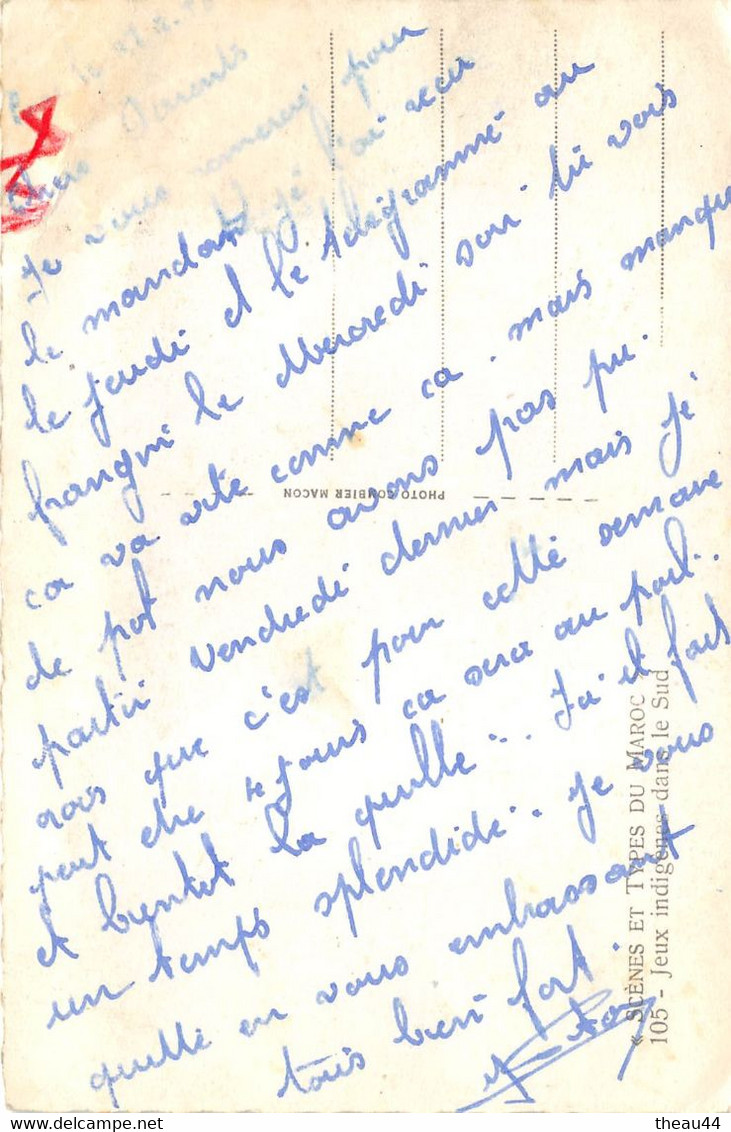 le 21.2.
Chers Parents
Je vous remercy pour
le mandat je l'ai recu
le jeudi et le teligramme au
franqui le Mercredi soir tu vois
ca va vite comme ca. mais manque
de pot nous avons pas pu.
partir vendredi dernier mais jé
crois que c'est pour cette semaine
peut etre 4 jours ca sera au poil..
et bientet la quille... Ici il fait
un temps splendide.. Je vous
quitte en vous embrassant
tous bien fort.
PHOTO COMBIER MACON
« SCÈNES ET TYPES DU MAROC »
105 - Jeux indigènes dans le Sud
theau44